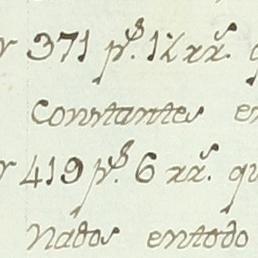 371 p.s 12 rr.s
constantes en
419 p.s 6 rr.s qu
nados entodo